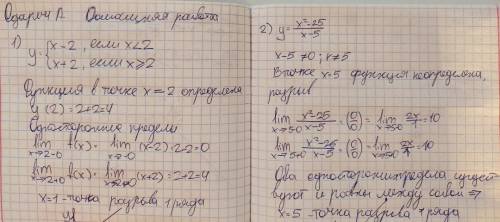 Одарич А. Домашняя работа
1) y={x-2, если x<2
x+2, если x≥2
Функция в точке x=2 определена
y(2)=2+2=4
Односторонние пределы
lim x→2-0 f(x)= lim x→2-0 (x-2)=2-2=0
lim x→2+0 f(x)= lim x→2+0 (x+2)=2+2=4
x=1-точка разрыва 1 рода
y↑
2) y= x²-25/x-5
x-5≠0; x≠5
В точке x=5 функция неопределена,
разрыв
lim x→5-0 x²-25/x-5 =(0/0)= lim x→5-0 2x/1=10
lim x→5+0 x²-25/x-5 =(0/0)= lim x→5+0 2x/1=10
Два односторонних предела сущест-
вуют и равны между собой ⇒
x=5-точка разрыва 1 рода